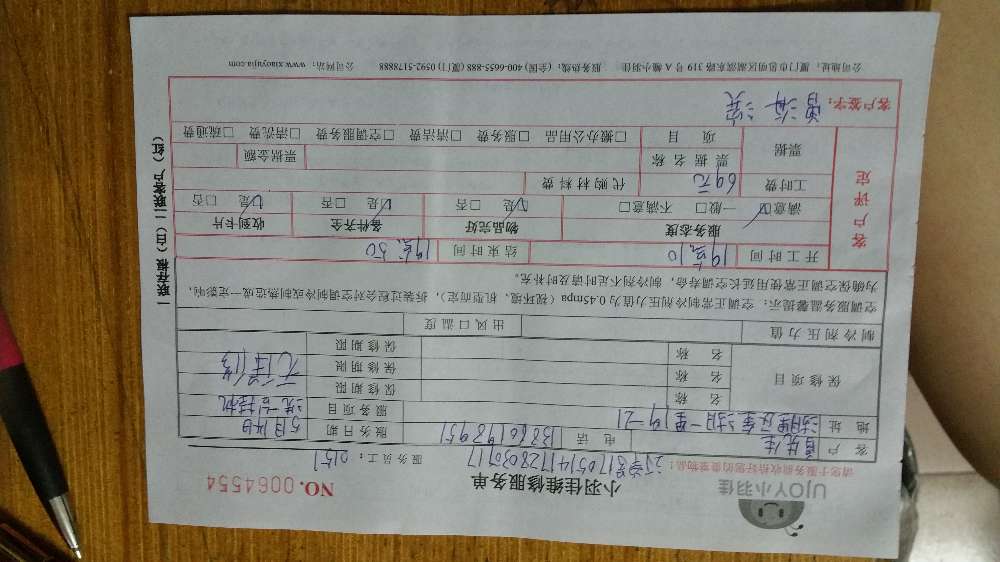 UJOY小羽佳
小羽佳维修服务单
NO. 0064554
请您于服务前收好您的贵重物品!
1705141728030717
服务员工: 0151
客户
电话
服务日期 5月14日
地址
服务项目 洗一台挂机
保修项目
名称
保修期限
名称
保修期限
名称
保修期限
无保修
制冷剂压力值
出风口温度
空调服务温馨提示: 空调正常制冷剂压力值为0.45mpa(视环境、机型而定), 拆装过程会对空调制冷或制热造成一定影响,
为确保空调正常使用延长空调寿命, 制冷剂不足时请及时补充。
客户评定
开工时间 19点10
结束时间 19点50
服务态度
物品完好
备件齐全
收到卡片
满意☑ 一般□ 不满意□
☑是 □否
☑是 □否
☑是 □否
工时费 69元
代购材料费
票据
票据名称
票据金额
项目
□搬办公用品 □服务费 □清洁费 □空调服务费 □清洗费 □疏通费
客户签字:
公司地址: 厦门市思明区湖滨东路 319 号 A 幢小羽佳 服务热线: (全国) 400-6655-888 (厦门) 0592-5178888 公司网站: www.xiaoyujia.com
一联存根(白) 二联客户(红)